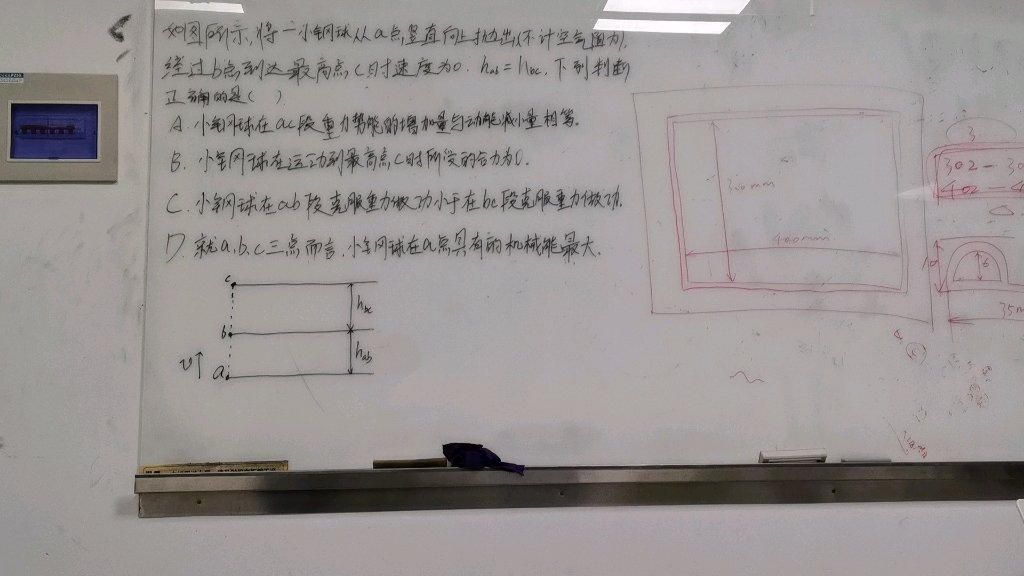 如图所示,将一小钢球从a点竖直向上抛出(不计空气阻力),
经过b点到达最高点C时速度为0. hab=hbc, 下列判断
正确的是( )
A. 小钢球在ac段重力势能的增加量与动能减小量相等.
B. 小钢球在运动到最高点C时所受的合力为0.
C. 小钢球在ab段克服重力做功小于在bc段克服重力做功.
D. 就a.b.c三点而言,小钢球在a点具有的机械能最大.
c
hbc
b
hab
v↑
a
300mm
400mm
3
302-30
402-4
10
6
35m